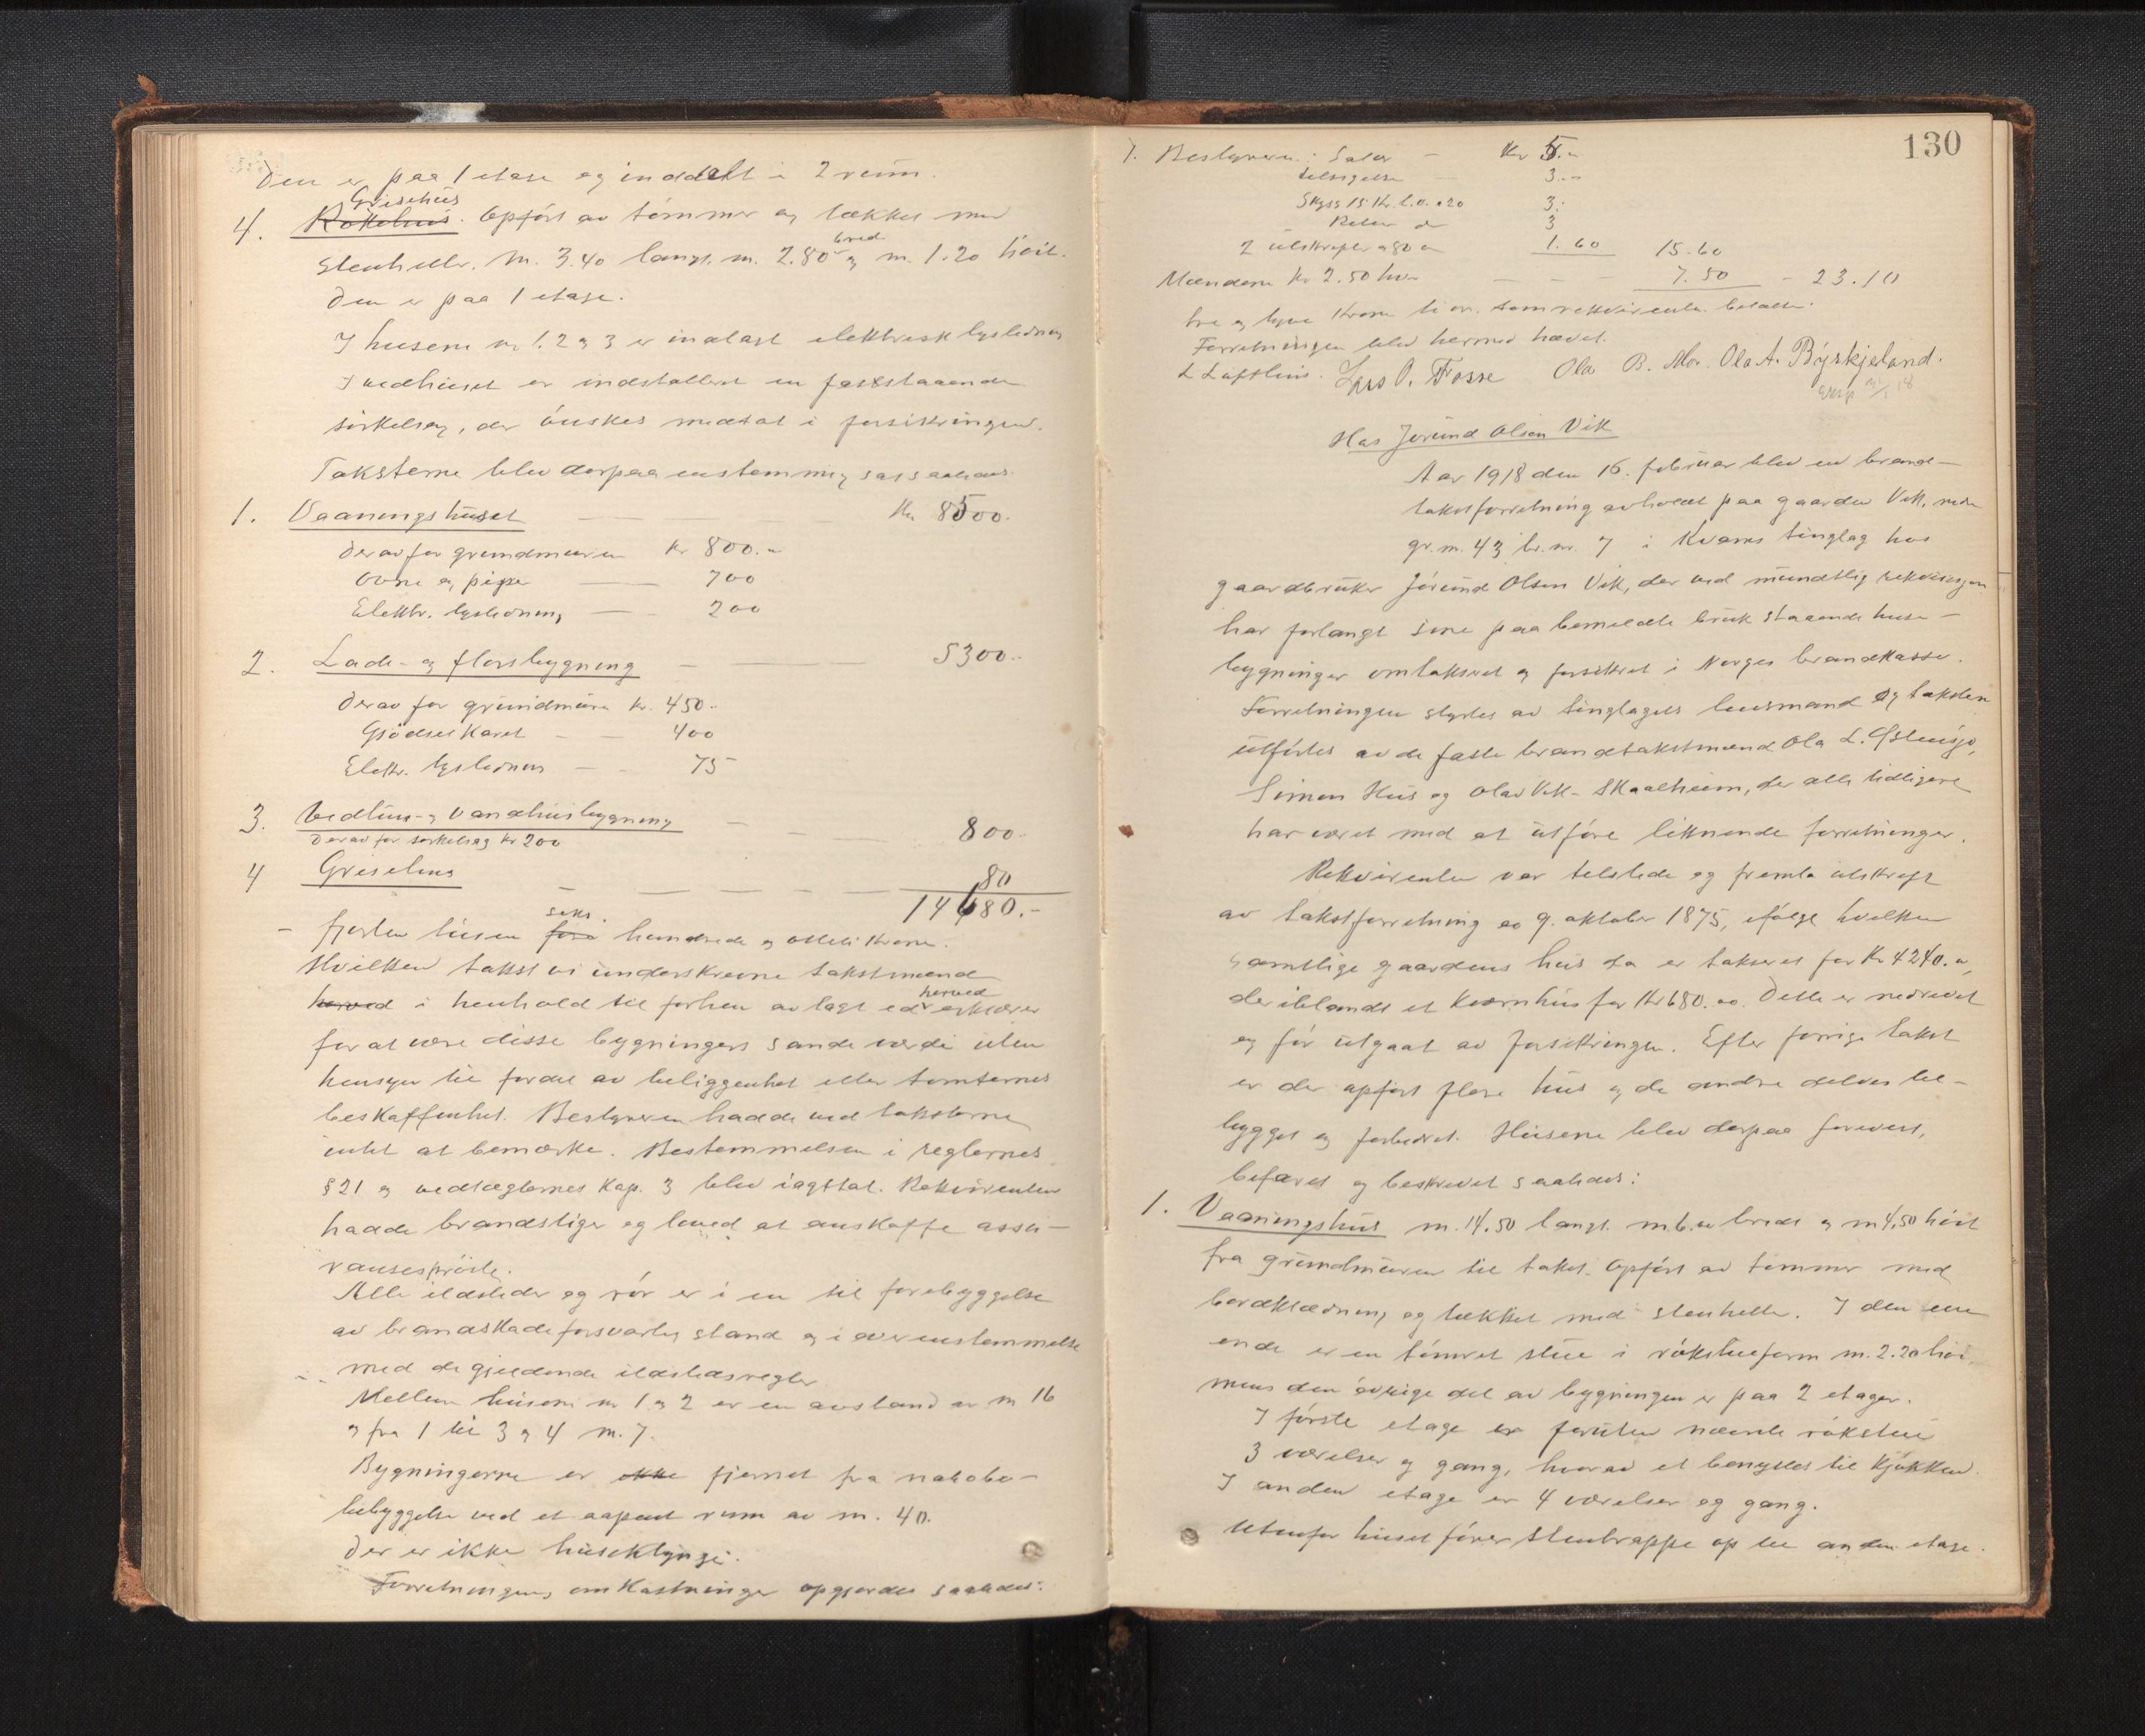 Den er paa 1 etase og inddelt i 2 rum.
Grisehus
4. Rökehus. Opfört av tömmer og tækket med
Stenheller. M. 3.40 langt. m. 2.80 bred og m. 1.20 höit.
Den er paa 1 etase.
I husene nr 1. 2 og 3 er indlagt elektrisk lysledning
I vedhuset er indstalleret en faststaaende
sirkelsag, der önskes medtat i forsikringen.
Taksterne blev derpaa enstemmig sat saaledes:
1. Vaaningshuset Kr 8500.-
Derav for grundmuren Kr 800.-
Ovne og piper 700
Elektr. lysledning 200
2. Lade- og florsbygning 5300.-
Derav for grundmuren Kr. 450.-
Gjödselkaret 400
Elektr. lysledning 75
3. Vedhus- og vandhusbygning 800.-
Derav for sirkelsag Kr 200
4 Grisehus 80
14680.-
- fjorten tusen fem seks hundrede og otteti Kroner.
Hvilken takst vi underskrevne takstmænd
herved i henhold til forhen avlagt ed herved erklærer
for at være disse bygningers sande værdi uten
hensyn til fordel av beliggenhet eller tomternes
beskaffenhet. Bestyreren hadde ved taksterne
intet at bemærke. Bestemmelsen i reglernes
§ 21 og vedtægternes Kap. 3 blev iagttat. Rekvirenten
hadde brandstiger og loved at anskaffe assu-
ransespröite.
Alle ildsteder og rör er i en til forebyggelse
av brandskade forsvarlig stand og i overenstemmelse
med de gjeldende ildstedsregler
Mellem husene nr 1 og 2 er en avstand av m 16
og fra 1 til 3 og 4 m. 7.
Bygningerne er ikke fjernet fra nabobe-
bebyggelse ved et aapent rum av m. 40.
Der er ikke huseklynge.
Forretningens omkostninger opgjordes saaledes:
130
1. Bestyreren: Salær - Kr 5.-
tilsigelse 3.-
Skyss 15 Kr. l. a. 20 3:
Retur do 3
2 utskrifter a 80 ø 1.60 15.60
Mændene Kr 2.50 hver 7.50 - 23.10
tre og tyve Kroner ti ør. som rekvirenten betalte.
Forretningen blev hermed hævet.
L Lofthus. Lars O. Fosse Ola B. Mo. Ola A. Byrkjeland.
Hos Jörund Olsen Vik
Aar 1918 den 16. februar blev en brand-
takstforretning avholdt paa gaarden Vik, under
gr. nr. 43 br. nr. 7 i Kvams tinglag hos
gaardbruker Jörund Olsen Vik, der ved mundtlig rekvisisjon
har forlangt sine paa bemeldte bruk staaende huse-
bygninger omtakseret og forsikret i Norges brandkasse.
Forretningen styrtes av tinglagets lensmand og taksten
utförtes av de faste brandtakstmænd Ola L. Östensjö,
Simon Hus og Olav Vik-Skaalheim, der alle tidligere
har været med at utföre liknende forretninger.
Rekvirenten var tilstede og fremla utskrift
av takstforretning av 9. oktober 1875, ifölge hvilken
samtlige gaardens hus da er takseret for Kr 4240.00,
deriblandt et kværnhus for Kr 680.00. Dette er nedrevet
og får utgaa av forsikringen. Efter forrige takst
er der opfört flere hus og de andre delvis til-
bygget og forbedret. Husene blev derpaa forevist,
befaret og beskrevet saaledes:
1. Vaaningshus m. 14.50 langt. m. 6.00 bredt og m 4.50 höit
fra grundmuren til taket. Opfört av tömmer med
bordklædning og tækket med stenheller. I den ene
ende er en tömret stue i rökstueform m. 2.20 höi,
mens den övrige del av bygningen er paa 2 etager.
I förste etage er foruten nævnte rökstue
3 værelser og gang, hvorav et benyttes til kjökken.
I anden etage er 4 værelser og gang.
Utenfor huset förer stentrappe op til anden etage.